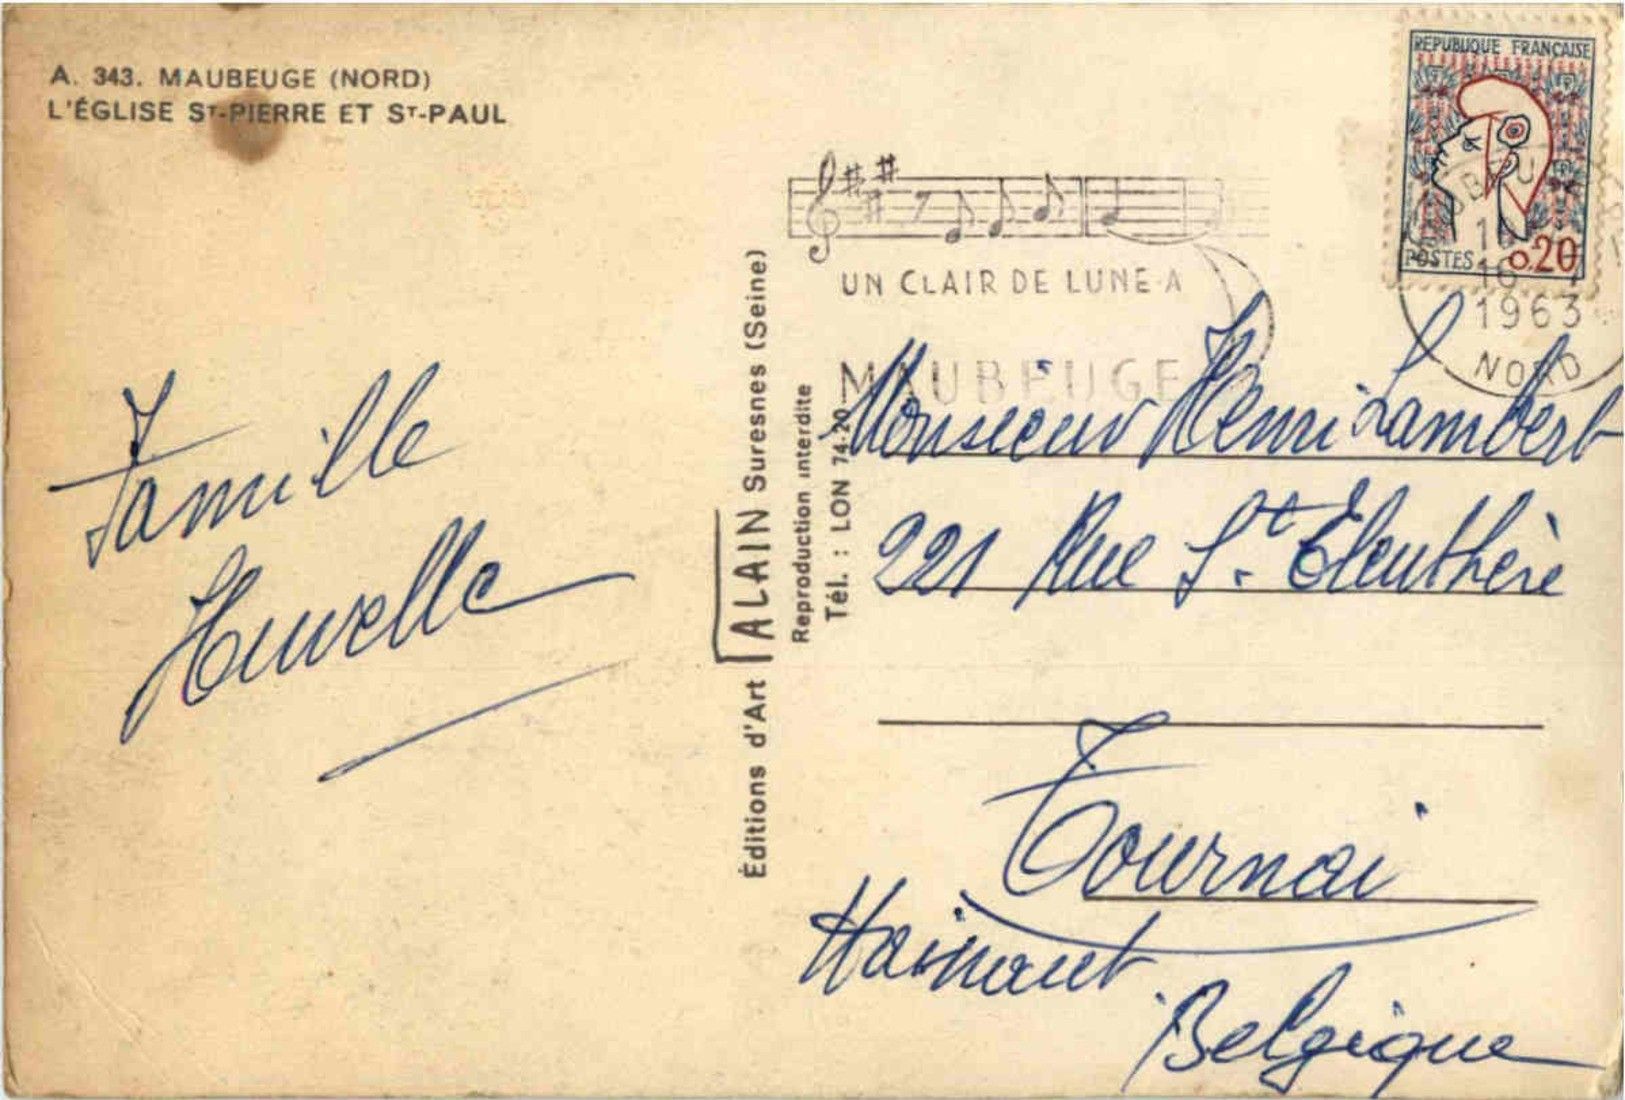 A. 343. MAUBEUGE (NORD)
L'ÉGLISE ST-PIERRE ET ST-PAUL
Famille
Huvelle
Éditions d'Art ALAIN Suresnes (Seine)
Reproduction interdite
Tél. : LON 74-20
UN CLAIR DE LUNE A
MAUBEUGE
REPUBLIQUE FRANÇAISE
POSTES 0,20
1963
NORD
Monsieur Henri Lambert
221 Rue St. Eleuthère
Tournai
Hainaut
Belgique